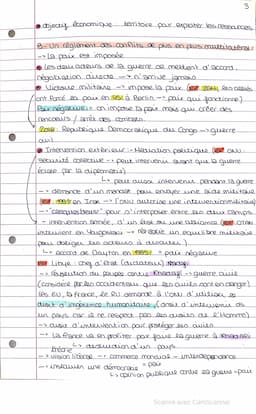 3
• objectif économique → territoire pour exploiter les ressources
B- Un règlement des conflits de plus en plus multilatéral :
→ La paix est imposée
• les deux acteurs de la guerre se mettent d'accord :
négociation directe → n'arrive jamais
• Victoire militaire → impose la paix
ont forcé la paix en à Berlin → paix qui fonctionne)
Paix négative : on impose la paix mais qui crée des
rancoeurs / des
République Démocratique du Congo → guerre
civil
• Intervention extérieur : Médiation politique ONU
sécurité collective → peut intervenir avant que la guerre
éclate par la diplomatie)
↳ peut aussi intervenir pendant la guerre
→ demande d'un mandat pour envoyer une aide militaire
en Irak → l'ONU autorise une intervention militaire)
→ "casques bleus" pour s'interposer entre les deux camps
→ intervention armée, d'un état ou une alliance
intervient en Yougoslavie → rétablir un équilibre militaire
pour obliger les acteurs à discuter)
↳ accord de Dayton en 1995 → paix négative
Libye : chef d'état (dictateur)
↳ Révolution du peuple contre → guerre civile
(considéré par les occidentaux que les civils sont en danger)
les EU, la France, le RU demande à l'ONU d'utiliser le
droit d'ingérence humanitaire (droit d'intervenir dans
un pays car il ne respecte pas les droits de l'Homme)
→ droit d'intervention pour protéger les civils
→ La France va en profiter pour faire la guerre à
Libye ↳ destruction d'un pays
→ vision libérale → commerce mondial → interdépendance
→ installer une démocratie = paix
↳ opinion publique contre la guerre = paix
Scanné avec CamScanner